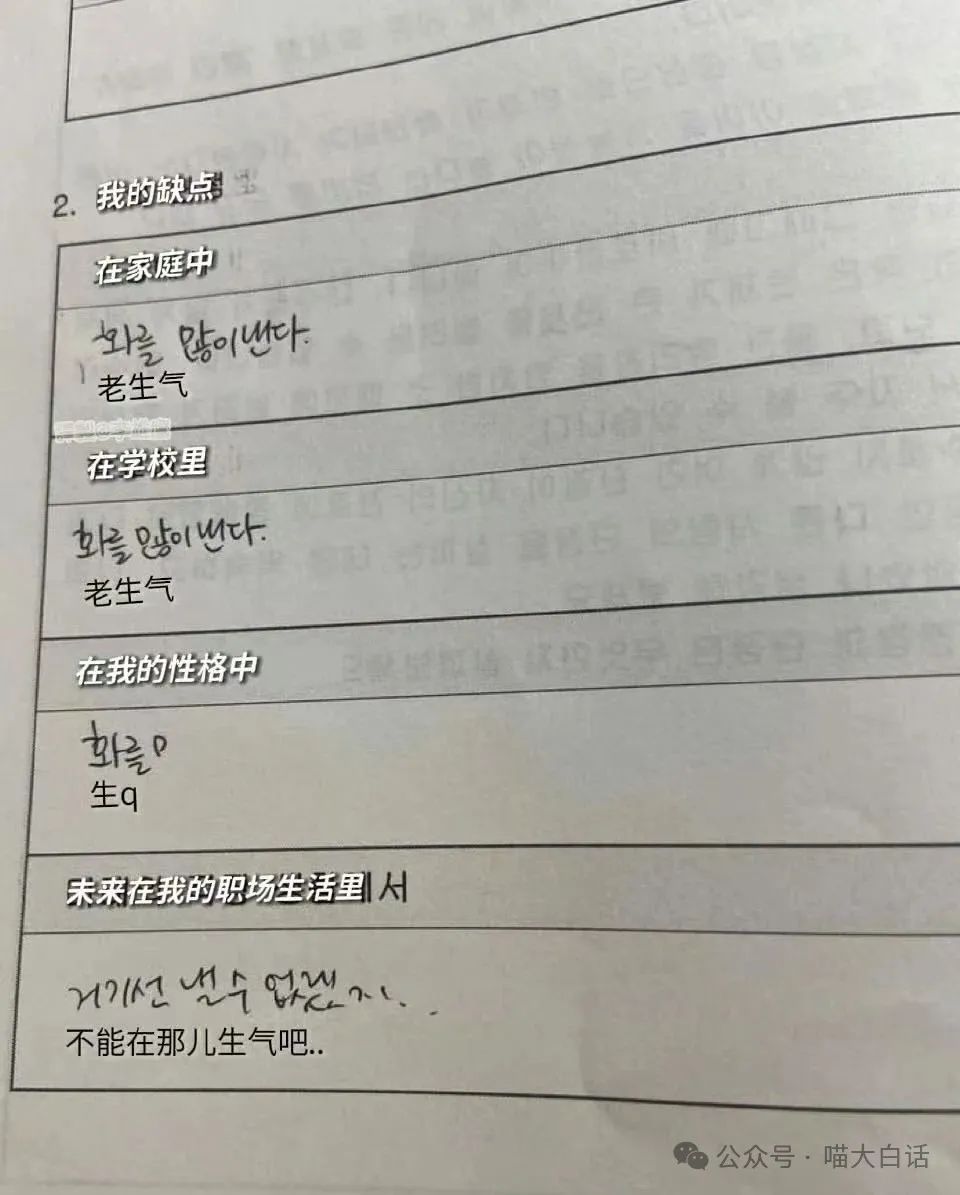 2. 我的缺点
在家庭中
화를 많이 낸다.
老生气
在学校里
화를 많이 낸다.
老生气
在我的性格中
화를ㅁ
生q
未来在我的职场生活里 서
거기선 낼 수 없겠지..
不能在那儿生气吧..
公众号 · 喵大白话